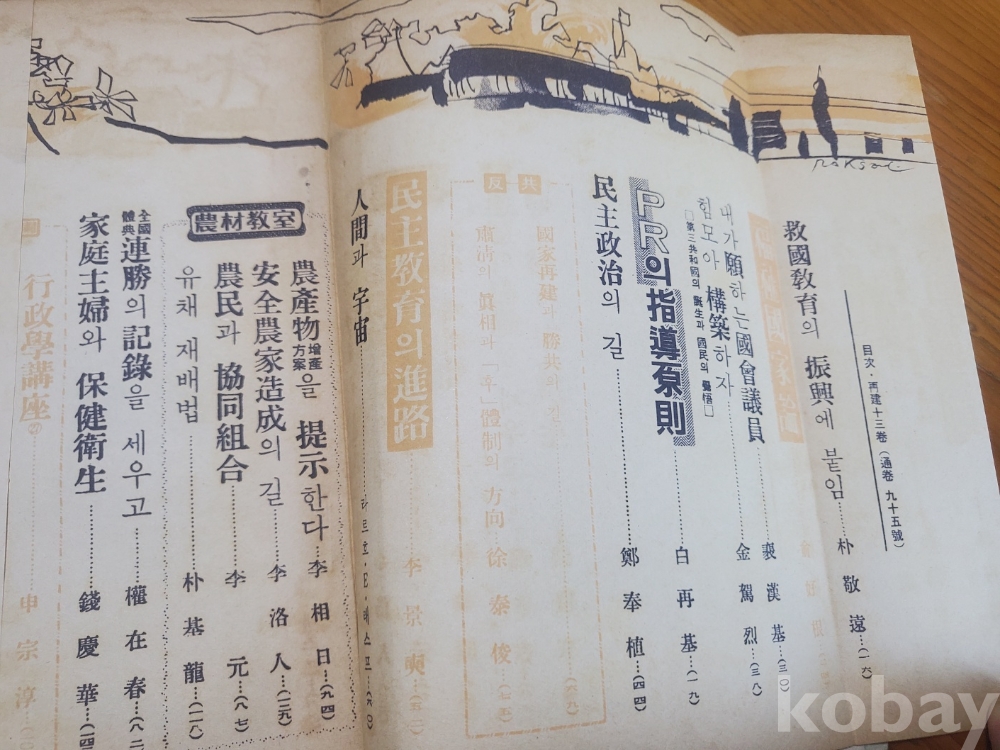 目次·再建十三卷(通卷 九十五號)
救國敎育의 振興에 붙임……朴敬遠…(一六)
내가 願하는 國會議員……裵漢基…(三〇)
힘모아 構築하자……金駕烈…(三八)
PR의 指導原則……白再基…(一九)
□第三共和國의 誕生과 國民의 覺悟□
民主政治의 길……鄭奉植…(四四)
反共
國家再建과 勝共의 길
肅淸의 眞相과 「후」體制의 方向…徐泰俊
民主敎育의 進路……李景
人間과 宇宙……라르흐·E·해스프…(六〇)
農村敎室
農產物增產方案을 提示한다…李相日…(九四)
安全農家造成의 길…李洛人…(一二九)
農民과 協同組合……李元…(八七)
유채 재배법……朴基龍…(一一八)
全國體典 連勝의 記錄을 세우고……權在春…(八二
家庭主婦와 保健衛生……錢慶華…(一四
行政學講座……申宗淳
raksoti
kobay